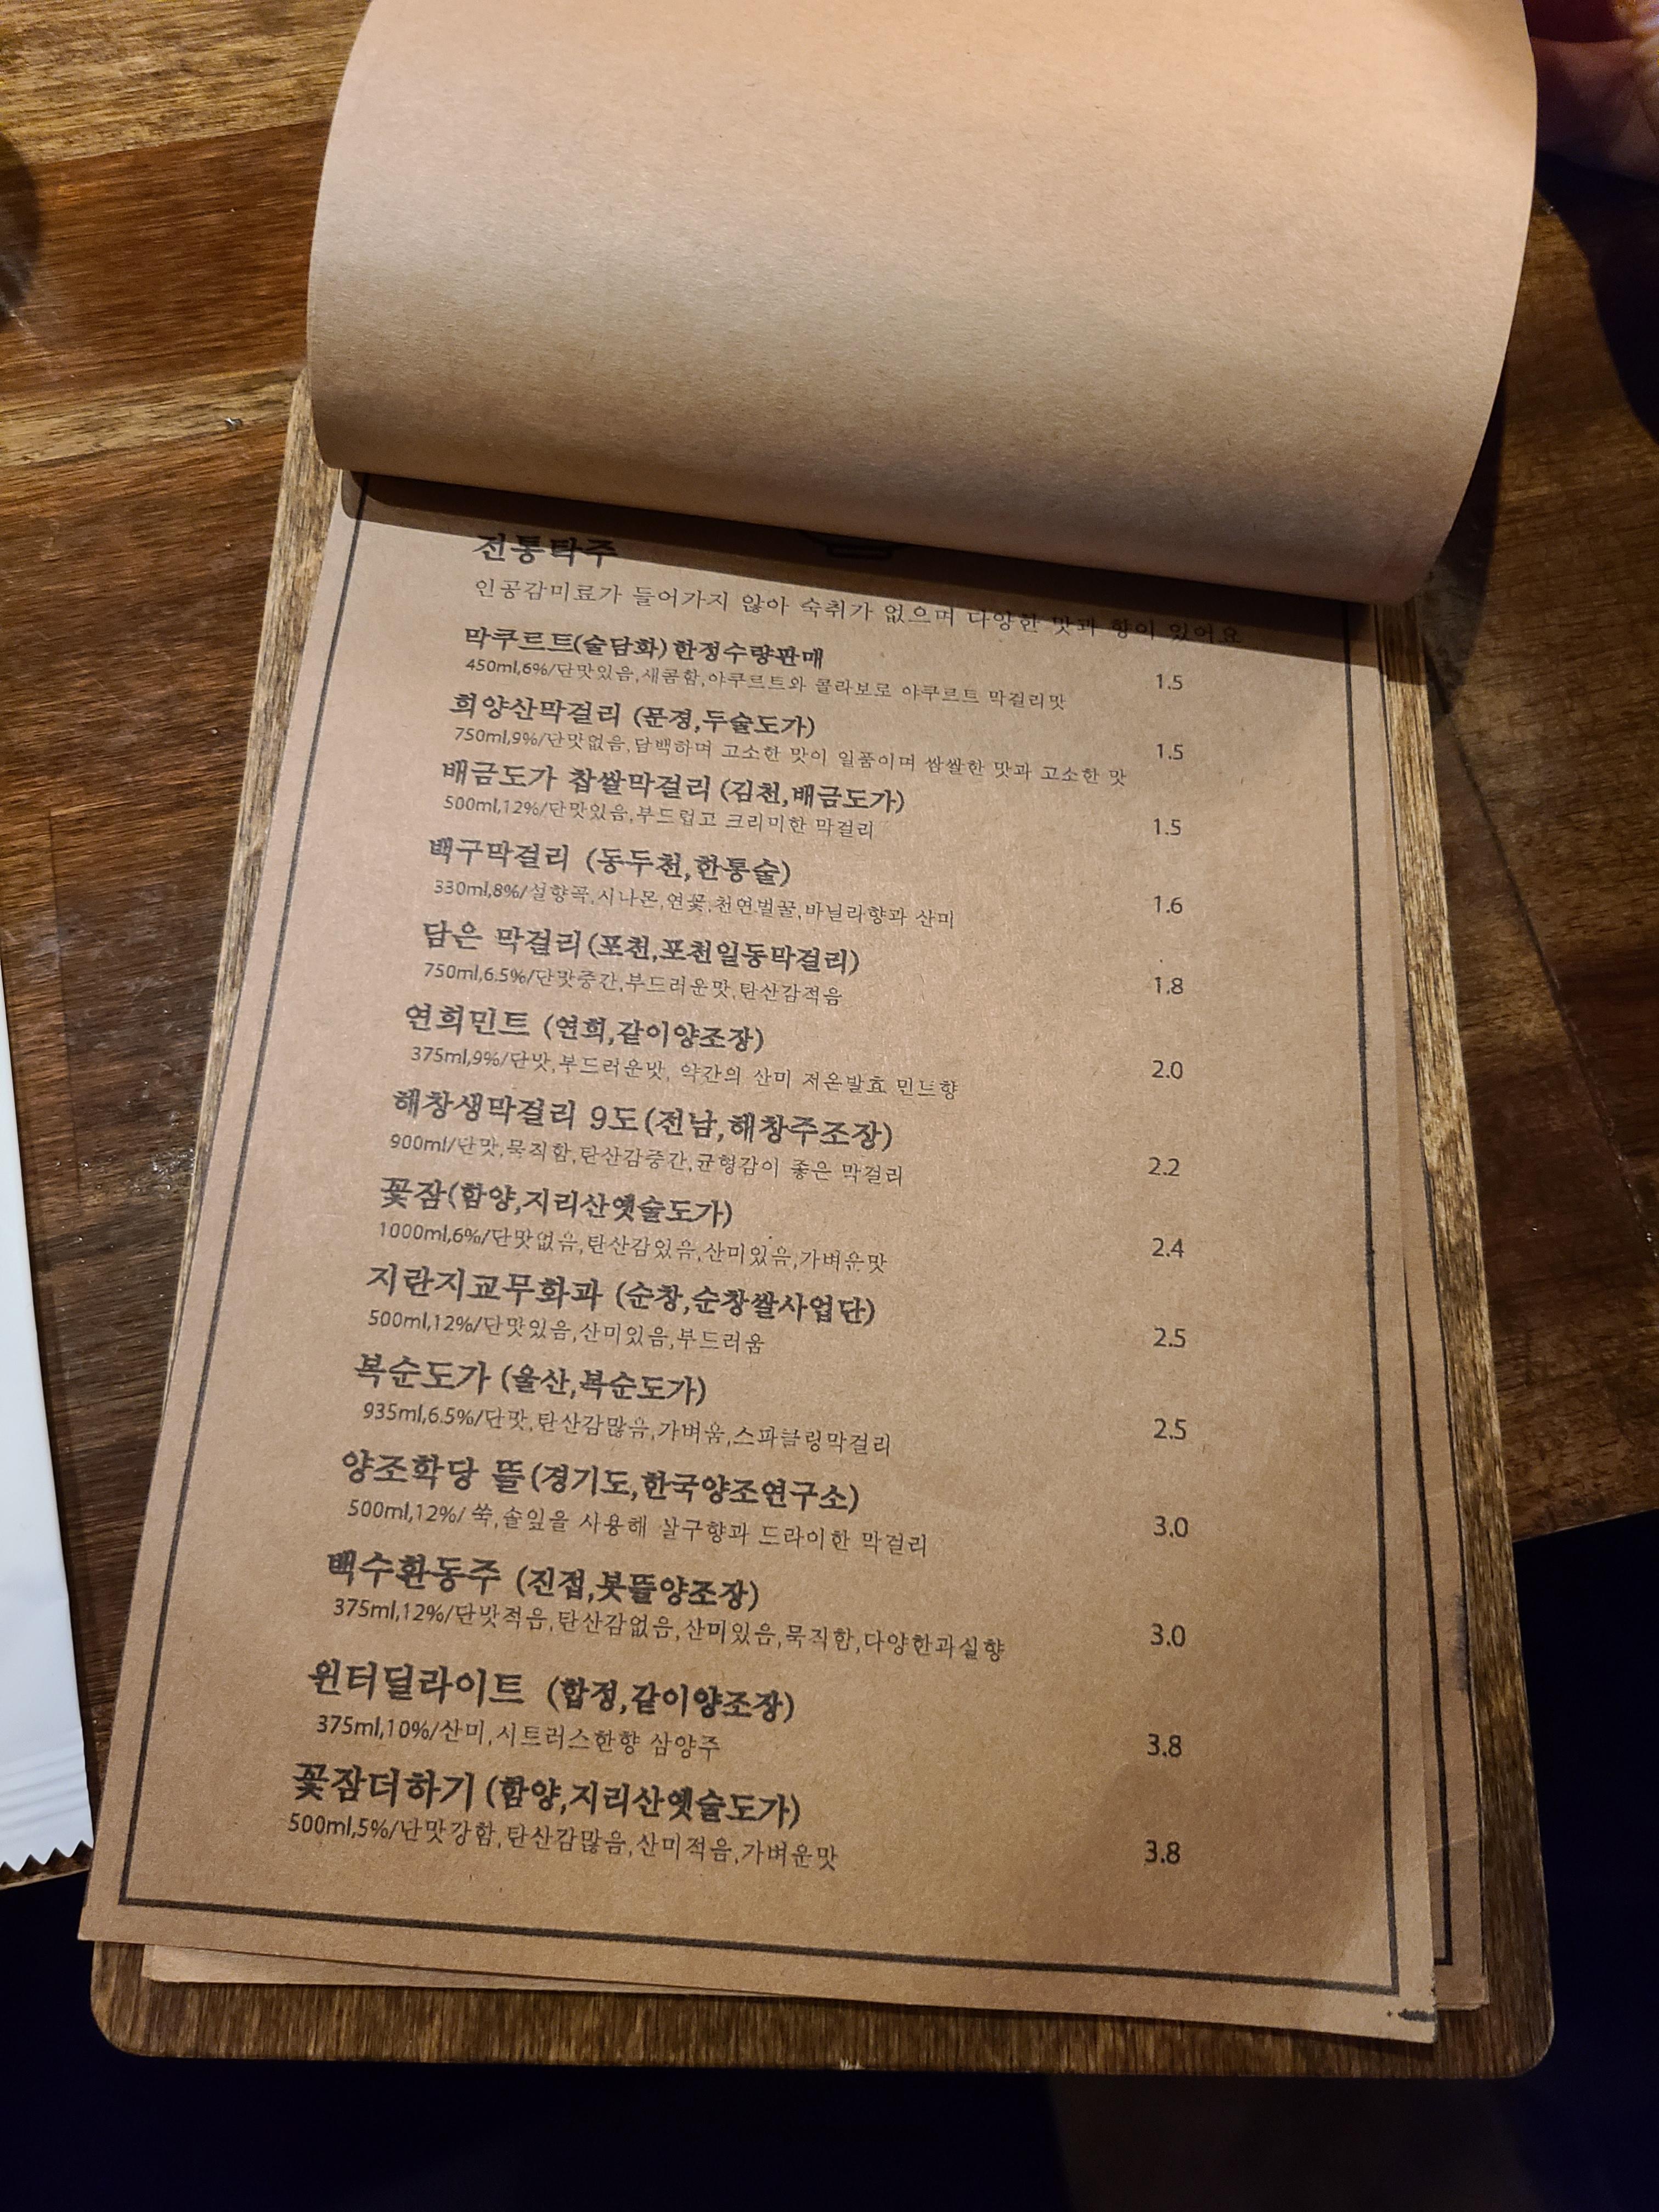 전통탁주
인공감미료가 들어가지 않아 숙취가 없으며 다양한 맛과 향이 있어요
막쿠르트(술담화)한정수량판매
450ml,6%/단맛있음,새콤함,야쿠르트와 콜라보로 야쿠르트 막걸리맛 1.5
희양산막걸리 (문경,두술도가)
750ml,9%/단맛없음,담백하며 고소한 맛이 일품이며 쌉쌀한 맛과 고소한 맛 1.5
배금도가 찹쌀막걸리 (김천,배금도가)
500ml,12%/단맛있음,부드럽고 크리미한 막걸리 1.5
백구막걸리 (동두천,한통술)
330ml,8%/설향곡,시나몬,연꽃,천연벌꿀,바닐라향과 산미 1.6
담은 막걸리(포천,포천일동막걸리)
750ml,6.5%/단맛중간,부드러운맛,탄산감적음 1.8
연희민트 (연희,같이양조장)
375ml,9%/단맛,부드러운맛, 약간의 산미 저온발효 민트향 2.0
해창생막걸리 9도(전남,해창주조장)
900ml/단맛,묵직함,탄산감중간,균형감이 좋은 막걸리 2.2
꽃잠(함양,지리산옛술도가)
1000ml,6%/단맛없음,탄산감있음,산미있음,가벼운맛 2.4
지란지교무화과 (순창,순창쌀사업단)
500ml,12%/단맛있음,산미있음,부드러움 2.5
복순도가 (울산,복순도가)
935ml,6.5%/단맛,탄산감많음,가벼움,스파클링막걸리 2.5
양조학당 뜰(경기도,한국양조연구소)
500ml,12%/ 쑥,솔잎을 사용해 살구향과 드라이한 막걸리 3.0
백수환동주 (진접,봇뜰양조장)
375ml,12%/단맛적음,탄산감없음,산미있음,묵직함,다양한과실향 3.0
윈터딜라이트 (합정,같이양조장)
375ml,10%/산미,시트러스한향 삼양주 3.8
꽃잠더하기 (함양,지리산옛술도가)
500ml,5%/단맛강함,탄산감많음,산미적음,가벼운맛 3.8